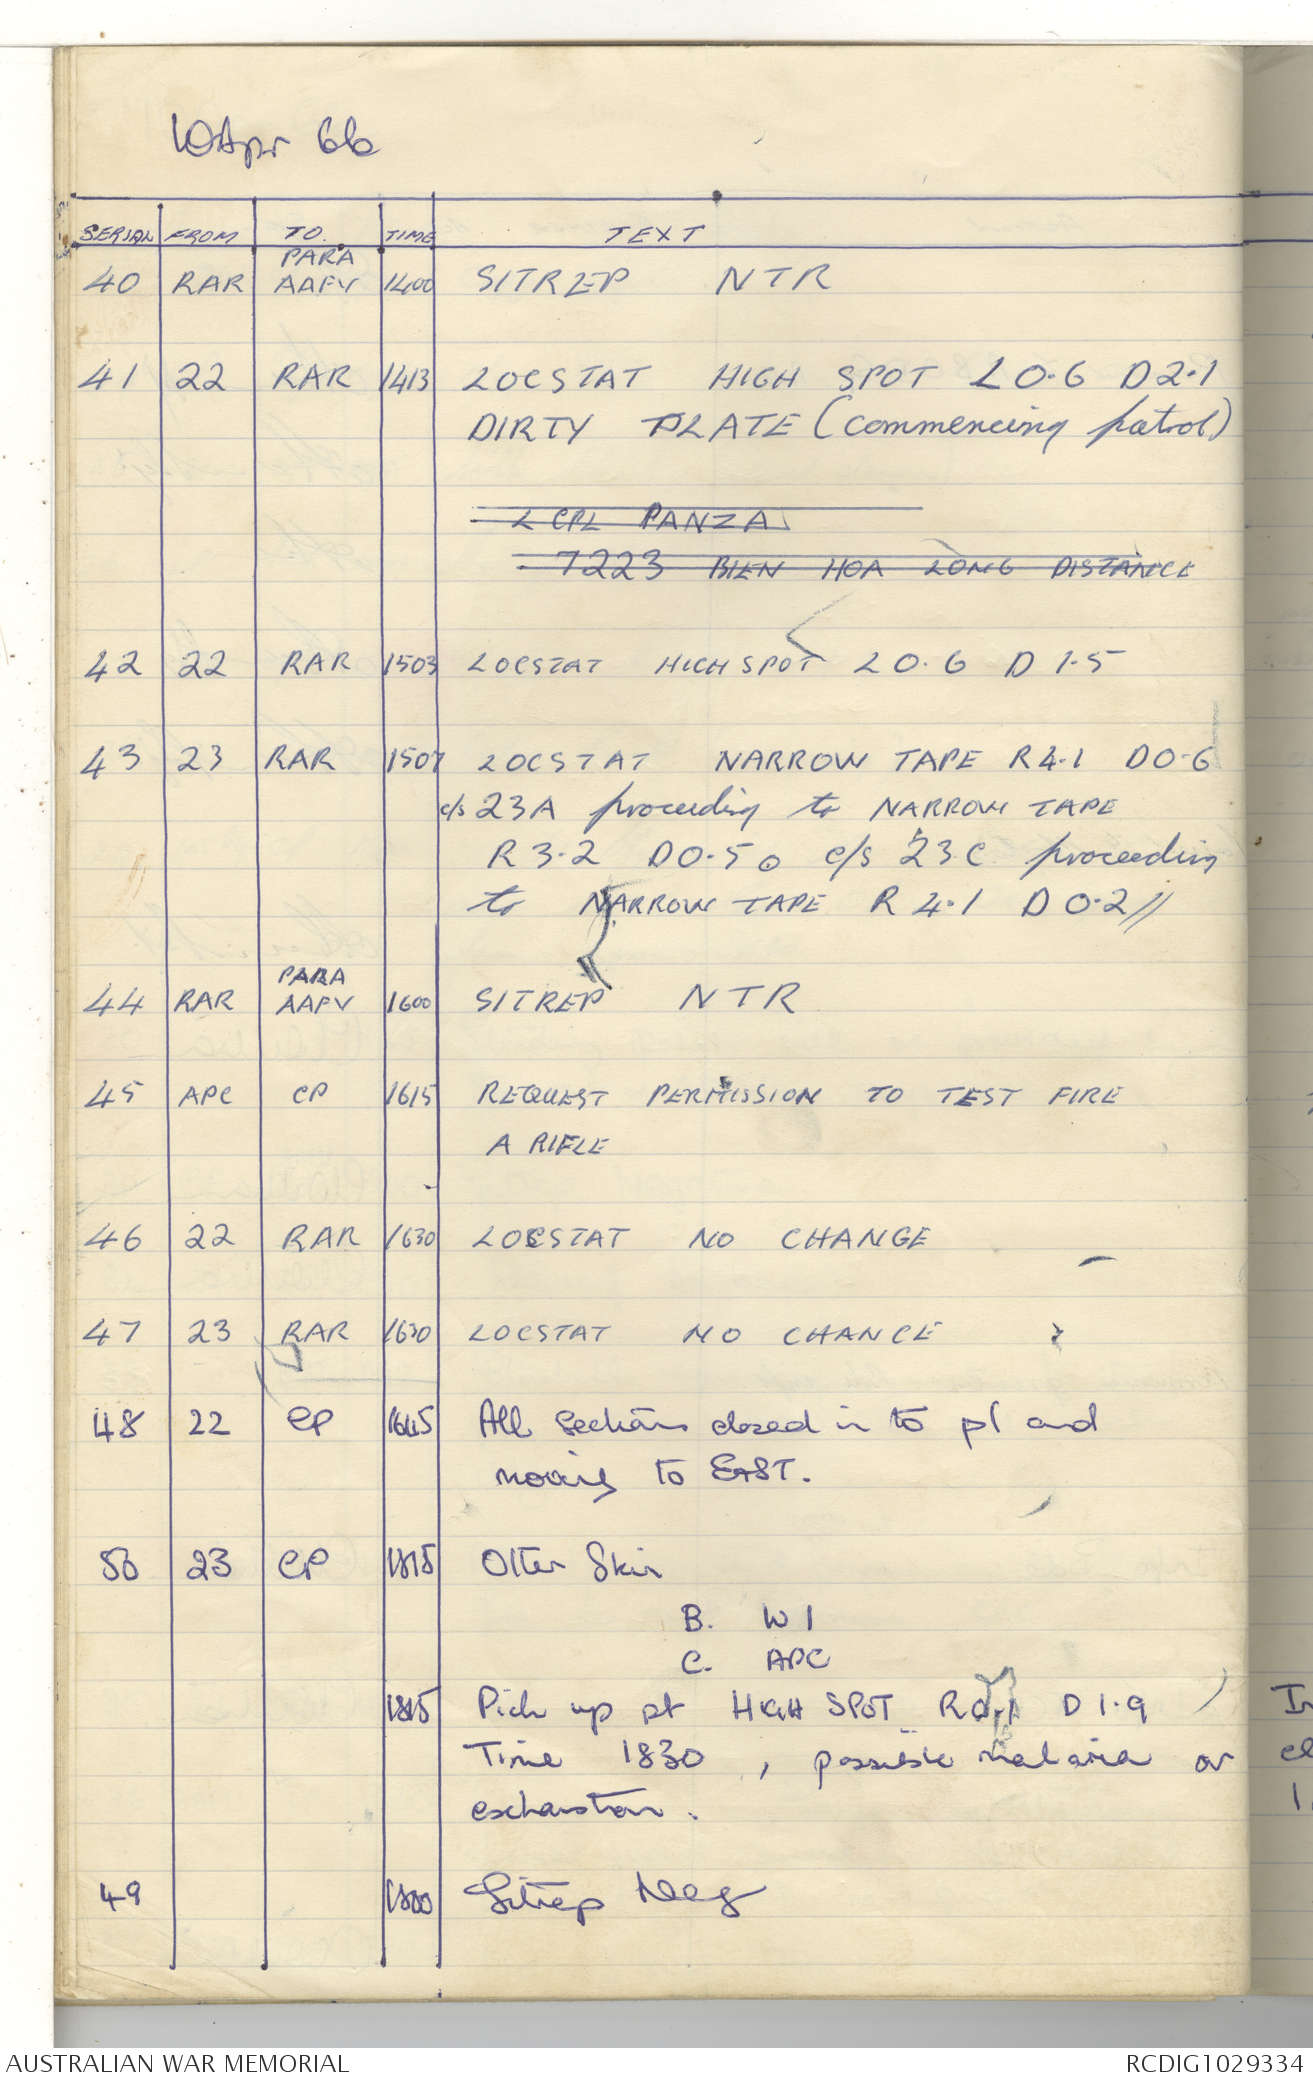 10 Apr 66
SERIAL FROM TO TIME TEXT
40 RAR PARA AAFV 1400 SITREP NTR
41 22 RAR 1413 LOCSTAT HIGH SPOT L0.6 D2.1
DIRTY PLATE (commencing patrol)
L CPL PANZA
7223 BIEN HOA LONG DISTANCE
42 22 RAR 1503 LOCSTAT HIGH SPOT L0.6 D1.5
43 23 RAR 1507 LOCSTAT NARROW TAPE R4.1 D0.6
c/s 23A proceeding to NARROW TAPE
R3.2 D0.5. c/s 23C proceeding
to NARROW TAPE R4.1 D0.2//
44 RAR PARA AAFV 1600 SITREP NTR
45 APC CP 1615 REQUEST PERMISSION TO TEST FIRE
A RIFLE
46 22 RAR 1630 LOCSTAT NO CHANGE
47 23 RAR 1630 LOCSTAT NO CHANGE
48 22 CP 1645 All sections closed in to pl and
moving to EAST.
50 23 CP 1815 Otter Skin
B. W1
C. APC
1815 Pick up pt HIGH SPOT D1.9
Time 1830, possible malaria or
exhaustion.
49 1800 Sitrep Neg
AUSTRALIAN WAR MEMORIAL
RCDIG1029334